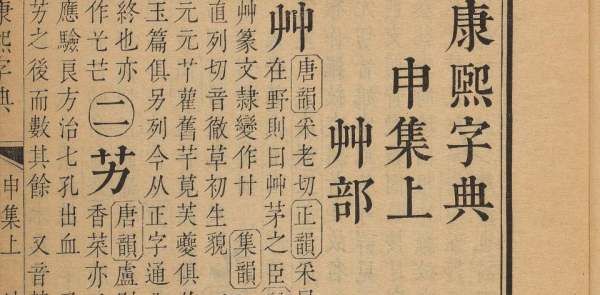 康熙字典
申集上
艸部
艸 唐韻采老切正韻采
在野則曰艸茅之臣
艸篆文隷變作廾 集韻
直列切音徹草初生貌
元元艹雚舊芊莧芙夔俱
玉篇俱另列今从正字通
終也亦
作芒
二 艻 唐韻盧
香菜亦
應驗良方治七孔出血
艻之後而數其餘 又音
康熙字典 申集上